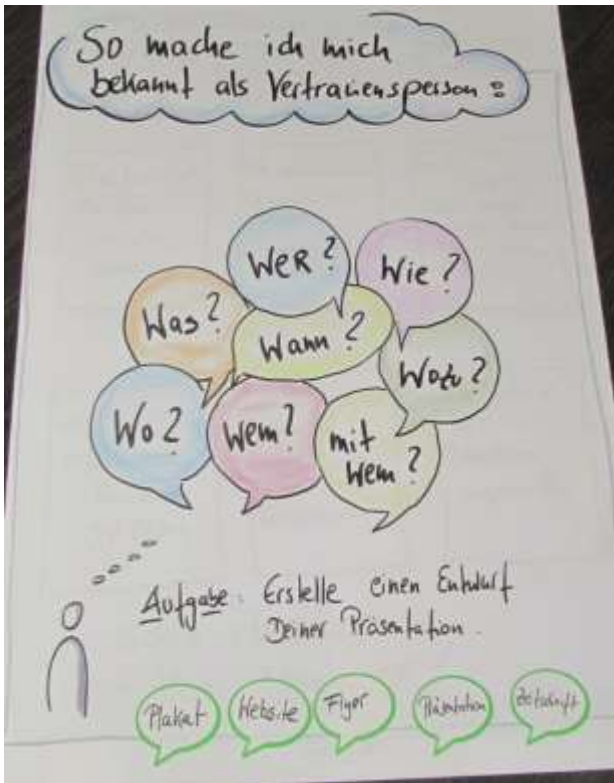 So mache ich mich
bekannt als Vertrauensperson :
Wer ?
Wie ?
Was ?
Wann ?
Wozu ?
Wo ?
Wem ?
mit
Wem ?
Aufgabe : Erstelle einen Entwurf
Deiner Präsentation .
Plakat Website Flyer Präsentation Zeitschrift